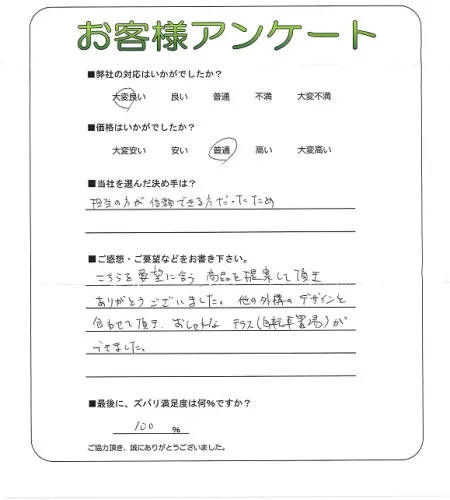 お客様アンケート
■弊社の対応はいかがでしたか？
大変良い 良い 普通 不満 大変不満
■価格はいかがでしたか？
大変安い 安い 普通 高い 大変高い
■当社を選んだ決め手は？
担当の方が信頼できる方だったため
■ご感想・ご要望などをお書き下さい。
こちらを要望に合う商品を提案して頂き
ありがとうございました。他の外構のデザインと
合わせて頂き、おしゃれなテラス(自転車置場)が
できました。
■最後に、ズバリ満足度は何％ですか？
100 ％
ご協力頂き、誠にありがとうございました。